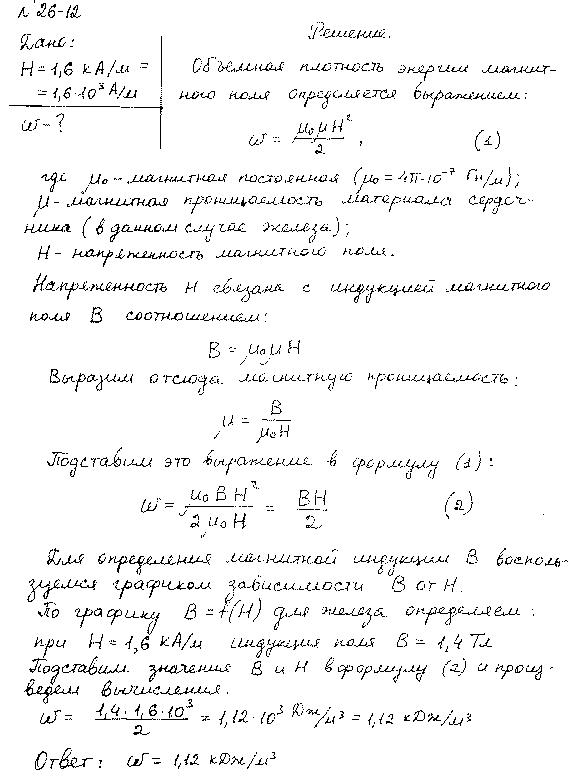 № 26-12
Дано:
H = 1,6 кА/м =
= 1,6·10³ А/м
w - ?
Решение.
Объемная плотность энергии магнит-
ного поля определяется выражением:
w = μ₀μH²/2 , (1)
где μ₀ - магнитная постоянная (μ₀ = 4π·10⁻⁷ Гн/м);
μ - магнитная проницаемость материала сердеч-
ника (в данном случае железа);
H - напряженность магнитного поля.
Напряженность H связана с индукцией магнитного
поля B соотношением:
B = μ₀μH
Выразим отсюда магнитную проницаемость:
μ = B/μ₀H
Подставим это выражение в формулу (1):
w = μ₀BH²/2μ₀H = BH/2 (2)
Для определения магнитной индукции B восполь-
зуемся графиком зависимости B от H.
По графику B = f(H) для железа определяем:
при H = 1,6 кА/м индукция поля B = 1,4 Тл
Подставим значения B и H в формулу (2) и произ-
ведем вычисления.
w = 1,4·1,6·10³/2 = 1,12·10³ Дж/м³ = 1,12 кДж/м³
Ответ: w = 1,12 кДж/м³